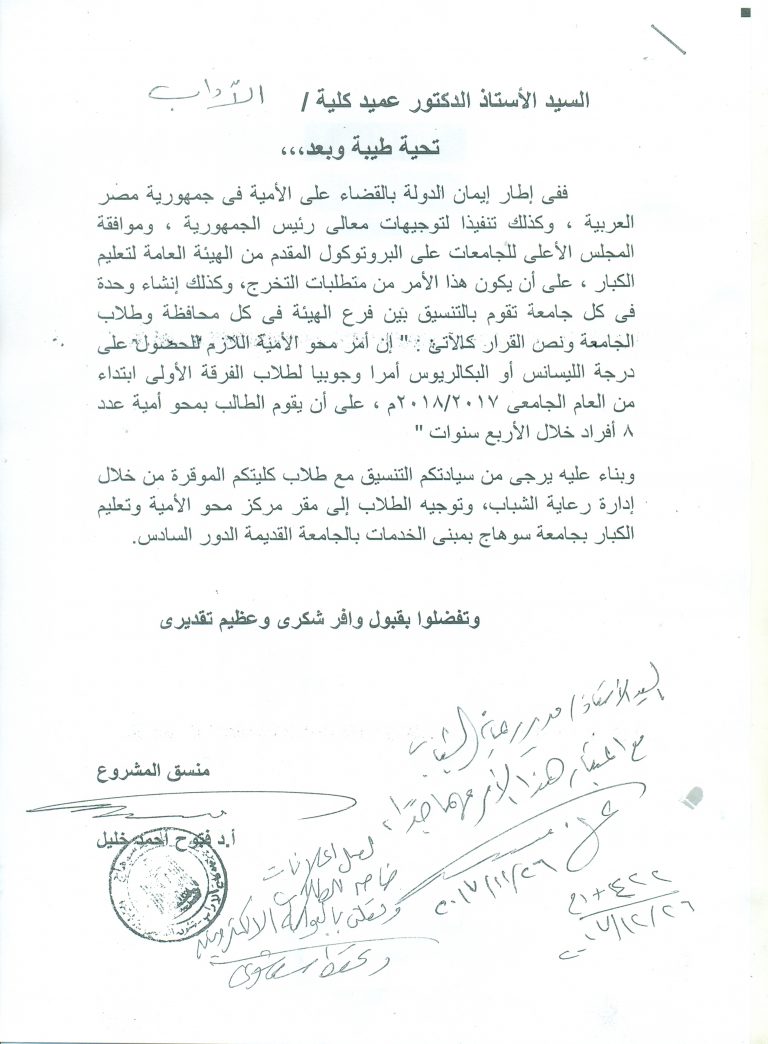 السيد الأستاذ الدكتور عميد كلية / الآداب
تحية طيبة وبعد،،،
ففى إطار إيمان الدولة بالقضاء على الأمية فى جمهورية مصر
العربية ، وكذلك تنفيذا لتوجيهات معالى رئيس الجمهورية ، وموافقة
المجلس الأعلى للجامعات على البروتوكول المقدم من الهيئة العامة لتعليم
الكبار ، على أن يكون هذا الأمر من متطلبات التخرج، وكذلك إنشاء وحدة
فى كل جامعة تقوم بالتنسيق بين فرع الهيئة فى كل محافظة وطلاب
الجامعة ونص القرار كالآتى : " إن أمر محو الأمية اللازم للحصول على
درجة الليسانس أو البكالريوس أمرا وجوبيا لطلاب الفرقة الأولى ابتداء
من العام الجامعى ٢٠١٨/٢٠١٧م ، على أن يقوم الطالب بمحو أمية عدد
٨ أفراد خلال الأربع سنوات "
وبناء عليه يرجى من سيادتكم التنسيق مع طلاب كليتكم الموقرة من خلال
إدارة رعاية الشباب، وتوجيه الطلاب إلى مقر مركز محو الأمية وتعليم
الكبار بجامعة سوهاج بمبنى الخدمات بالجامعة القديمة الدور السادس.
وتفضلوا بقبول وافر شكرى وعظيم تقديرى
السيد الأستاذ / مدير رعاية الشباب
مع اعتبار هذا الأمر مهما جدا
منسق المشروع
أ.د فتوح أحمد خليل
لعمل اعلانات
خاصة للطلاب
بالبوابة الالكترونية
٢٠١٧/١١/٢٦
٢٠١٧/١٢/٢٦